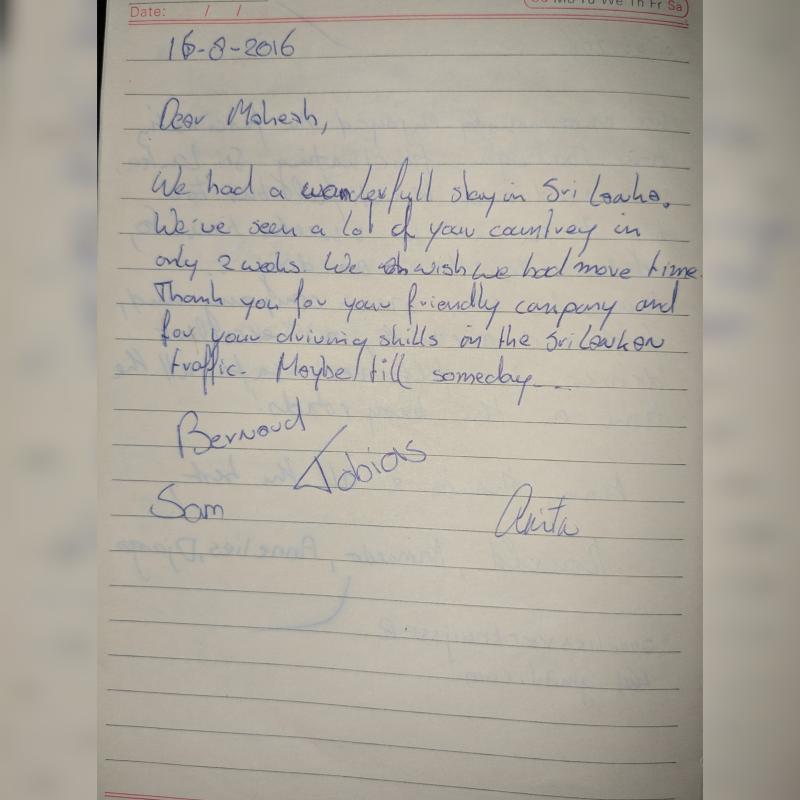 Su Mo Tu We Th Fr Sa
Date: / /
16-8-2016
Dear Mahesh,
We had a wonderfull stay in Sri Lanka.
We've seen a lot of your countrey in
only 2 weeks. We wish we had more time.
Thank you for your friendly company and
for your driving skills in the Sri Lankan
traffic. Maybe till someday...
Bernoud
Tobias
Sam
Anita